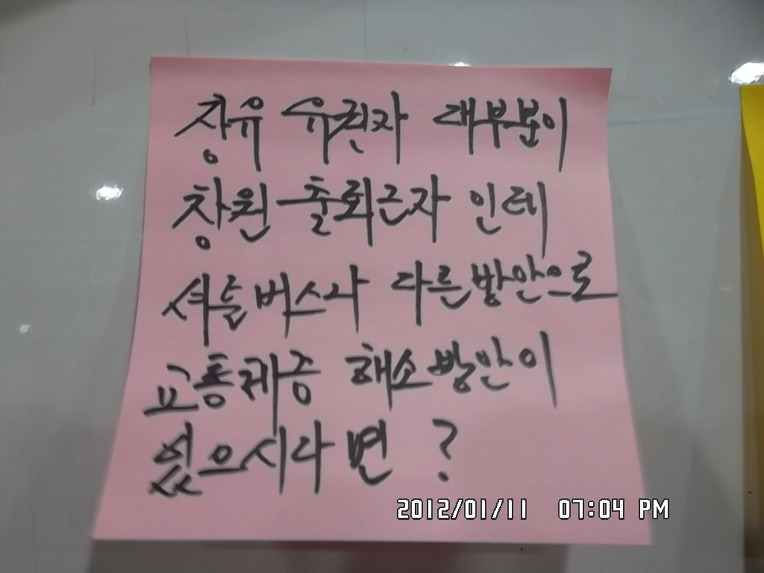 장유 유권자 대부분이
창원 출퇴근자 인데
셔틀버스나 다른방안으로
교통체증 해소방안이
있으시다면 ?
2012/01/11 07:04 PM